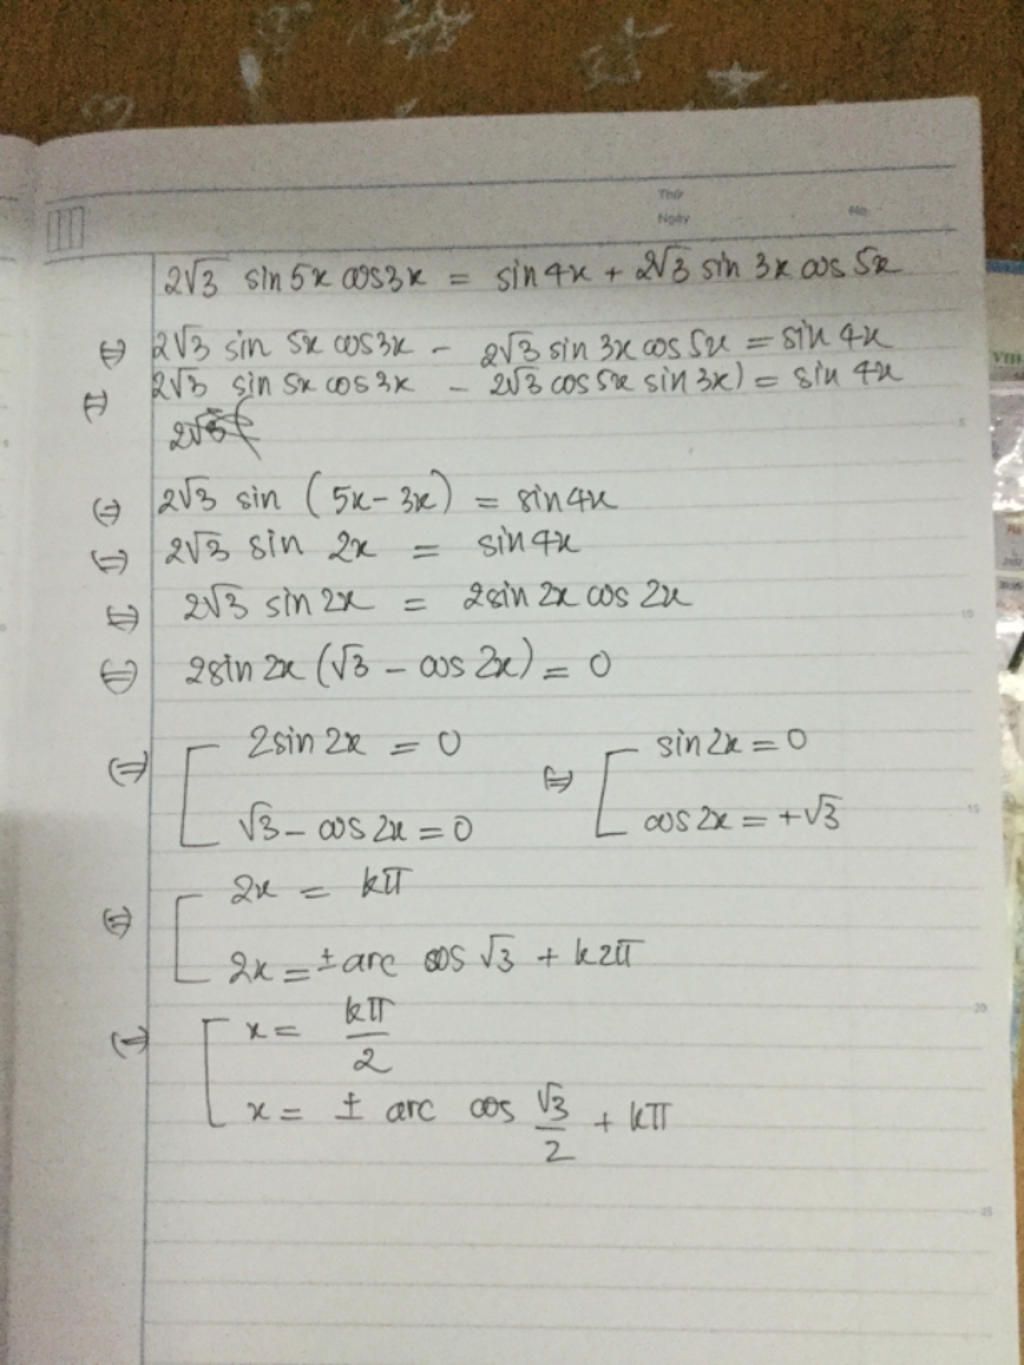 Thứ
Ngày
No.
2√3 sin 5x cos3x = sin 4x + 2√3 sin 3x cos 5x
(=) 2√3 sin 5x cos3x - 2√3 sin 3x cos 5x = sin 4x
(=) 2√3 sin 5x cos 3x - 2√3 cos 5x sin 3x) = sin 4x
(=) 2√3 sin (5x - 3x) = sin 4x
(=) 2√3 sin 2x = sin 4x
(=) 2√3 sin 2x = 2sin 2x cos 2x
(=) 2sin 2x (√3 - cos 2x) = 0
(=) [ 2sin 2x = 0 (=) [ sin 2x = 0
√3 - cos 2x = 0 cos 2x = +√3
(=) [ 2x = kπ
2x = ± arc cos √3 + k2π
(=) [ x = kπ/2
x = ± arc cos √3/2 + kπ
5
10
15
20
25